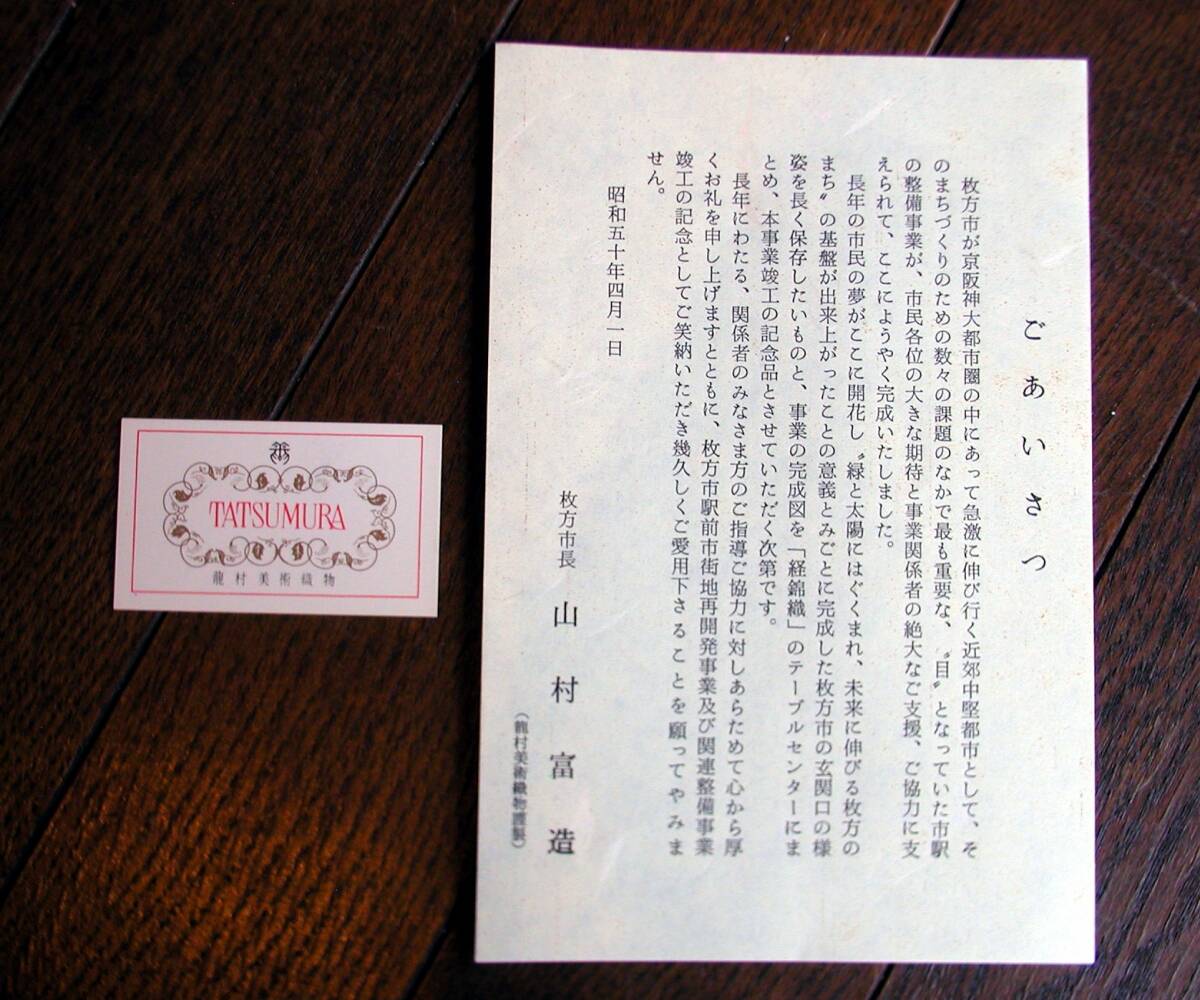 ごあいさつ
枚方市が京阪神大都市圏の中にあって急激に伸び行く近郊中堅都市として、そ
のまちづくりのための数々の課題のなかで最も重要な、〝目〟となっていた市駅
の整備事業が、市民各位の大きな期待と事業関係者の絶大なご支援、ご協力に支
えられて、ここにようやく完成いたしました。
長年の市民の夢がここに開花し〝緑と太陽にはぐくまれ、未来に伸びる枚方の
まち〟の基盤が出来上がったことの意義とみごとに完成した枚方市の玄関口の様
姿を長く保存したいものと、事業の完成図を「経錦織」のテーブルセンターにま
とめ、本事業竣工の記念品とさせていただく次第です。
長年にわたる、関係者のみなさま方のご指導ご協力に対しあらためて心から厚
くお礼を申し上げますとともに、枚方市駅前市街地再開発事業及び関連整備事業
竣工の記念としてご笑納いただき幾久しくご愛用下さることを願ってやみま
せん。
昭和五十年四月一日
枚方市長 山村富造
（龍村美術織物謹製）
TATSUMURA
龍村美術織物